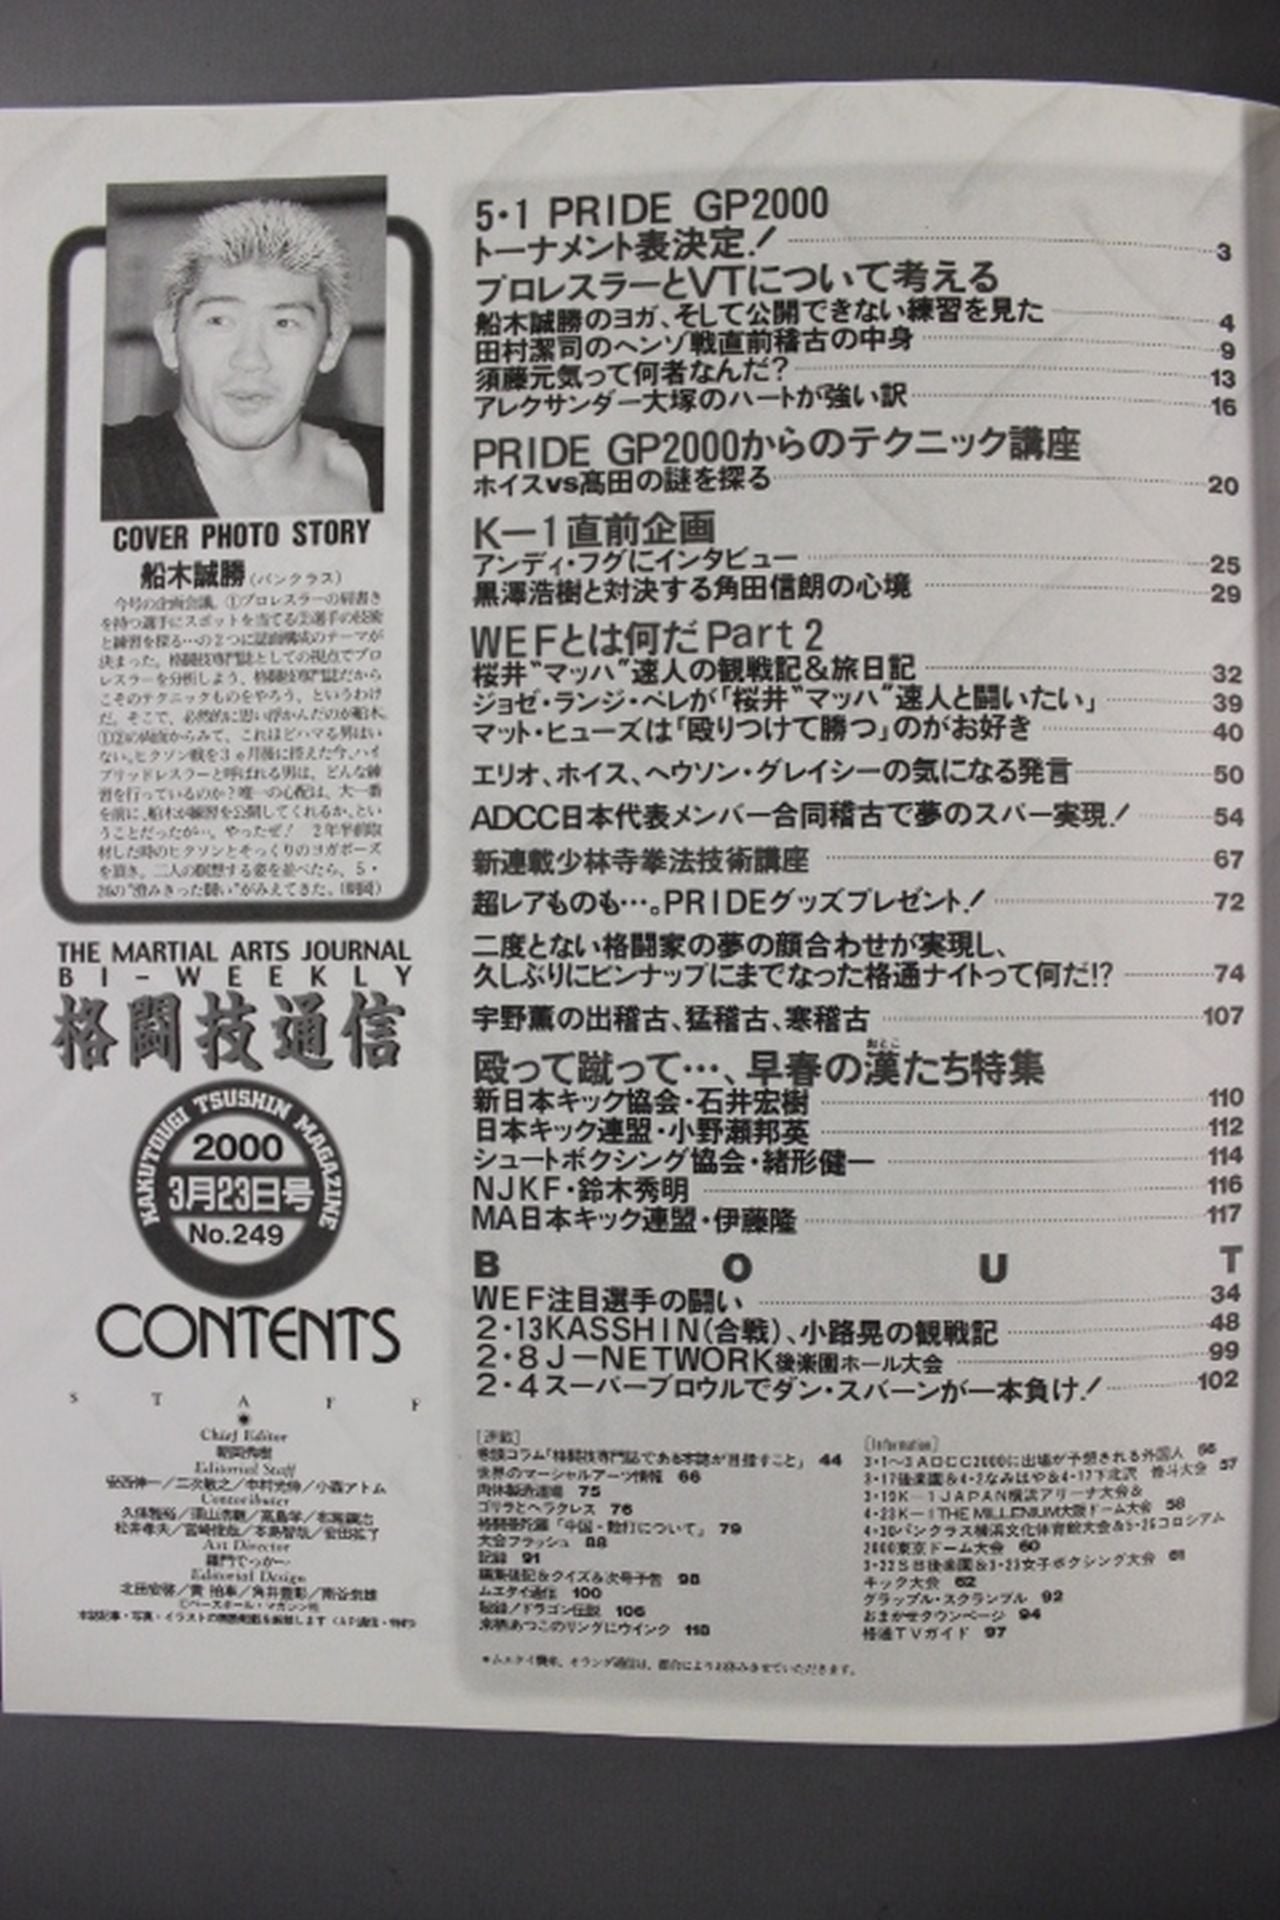 COVER PHOTO STORY
船木誠勝(パンクラス)
今号の企画会議。①プロレスラーの肩書き
を持つ選手にスポットを当てる②選手の技術
と練習を探る…の2つに誌面構成のテーマが
決まった。格闘技専門誌としての視点でプロ
レスラーを分析しよう、格闘技専門誌だから
こそのテクニックものをやろう、というわけ
だ。そこで、必然的に思い浮かんだのが船木。
①②の両面からみて、これほどハマる男はい
ない。ヒクソン戦を3ヵ月後に控えた今、ハイ
ブリッドレスラーと呼ばれる男は、どんな練
習を行っているのか?唯一の心配は、大一番
を前に、船木が練習を公開してくれるか、とい
うことだったが…。やったぜ! 2年半前取
材した時のヒクソンとそっくりのヨガポーズ
を頂き。二人の瞑想する姿を並べたら、5・
26の"澄みきった闘い"がみえてきた。(朝岡)
THE MARTIAL ARTS JOURNAL
BI-WEEKLY
格闘技通信
KAKUTOUGI TSUSHIN MAGAZINE
2000
3月23日号
No.249
CONTENTS
STAFF
Chief Editor
朝岡秀樹
Editorial Staff
安西伸一/三次敏之/中村光伸/小森アトム
Contributer
Art Director
Editorial Design
5・1 PRIDE GP2000
トーナメント表決定! 3
プロレスラーとVTについて考える
船木誠勝のヨガ、そして公開できない練習を見た 4
田村潔司のヘンゾ戦直前稽古の中身 9
須藤元気って何者なんだ? 13
アレクサンダー大塚のハートが強い訳 16
PRIDE GP2000からのテクニック講座
ホイスvs髙田の謎を探る 20
K-1直前企画
アンディ・フグにインタビュー 25
黒澤浩樹と対決する角田信朗の心境 29
WEFとは何だPart 2
桜井"マッハ"速人の観戦記&旅日記 32
ジョゼ・ランジ・ペレが「桜井"マッハ"速人と闘いたい」 39
マット・ヒューズは「殴りつけて勝つ」のがお好き 40
エリオ、ホイス、ヘウソン・グレイシーの気になる発言 50
ADCC日本代表メンバー合同稽古で夢のスパー実現! 54
新連載少林寺拳法技術講座 67
超レアものも…。PRIDEグッズプレゼント! 72
二度とない格闘家の夢の顔合わせが実現し、
久しぶりにピンナップにまでなった格通ナイトって何だ!? 74
宇野薫の出稽古、猛稽古、寒稽古 107
殴って蹴って…、早春の漢たち特集
おとこ
新日本キック協会・石井宏樹 110
日本キック連盟・小野瀬邦英 112
シュートボクシング協会・緒形健一 114
NJKF・鈴木秀明 116
MA日本キック連盟・伊藤隆 117
BOUT
WEF注目選手の闘い 34
2・13KASSHIN(合戦)、小路晃の観戦記 48
2・8J-NETWORK後楽園ホール大会 99
2・4スーパーブロウルでダン・スバーンが一本負け! 102
[連載]
巻頭コラム「格闘技専門誌である本誌が目指すこと」 44
世界のマーシャルアーツ情報 66
肉体製造道場 75
ゴリラとヘラクレス 76
格闘曼陀羅「中国・散打について」 79
大会フラッシュ 88
記録 91
編集後記&クイズ&次号予告 98
ムエタイ通信 100
秘録/ドラゴン伝説 106
来栖あつこのリングにウインク 118
[Information]
3・1~3ADCC2000に出場が予想される外国人 56
3・17後楽園&4・2なみはや&4・12下北沢 修斗大会 57
3・19K-1JAPAN横浜アリーナ大会&
4・23K-1THE MILLENIUM大阪ドーム大会 58
4・30パンクラス横浜文化体育館大会&5・26コロシアム
2000東京ドーム大会 60
3・22SB後楽園&3・23女子ボクシング大会 61
キック大会 62
グラップル・スクランブル 92
おまかせタウンページ 94
格通TVガイド 97